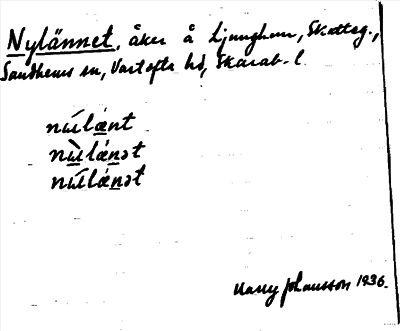 Nylännet, åker å Ljunghem, Skatteg.,
Sandhems sn, Vartofta hd, Skarab. l.
núlænt
nùlǽnət
núlǽnət
Harry Johansson 1936.